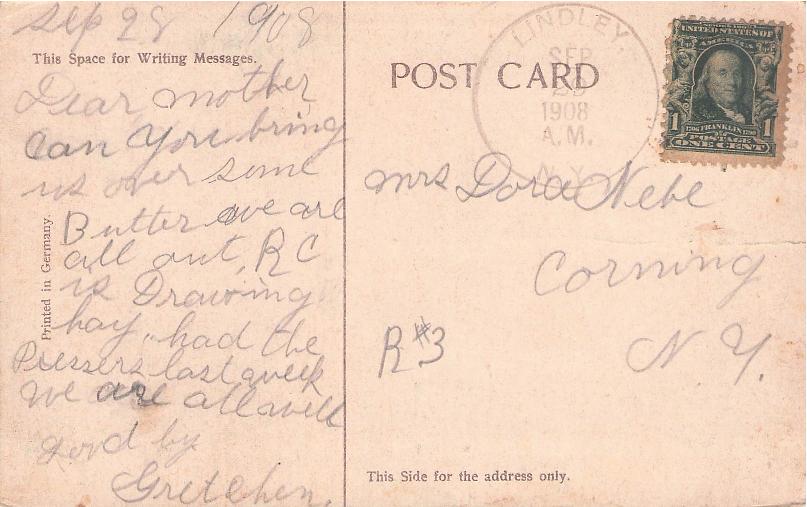 Sep 28 1908
This Space for Writing Messages.
Dear mother
Can you bring
us over some
Butter we are
all out, RC
is Drawing
hay, had the
Pressers last week
we are all well
good by
Gretchen.
Printed in Germany.
POST CARD
LINDLEY,
SEP
1908
A.M.
N.Y.
UNITED STATES OF
AMERICA
1 1
1706 FRANKLIN 1790
POSTAGE
ONE CENT
Mrs Dora Nebe
Corning
N. Y.
R#3
This Side for the address only.